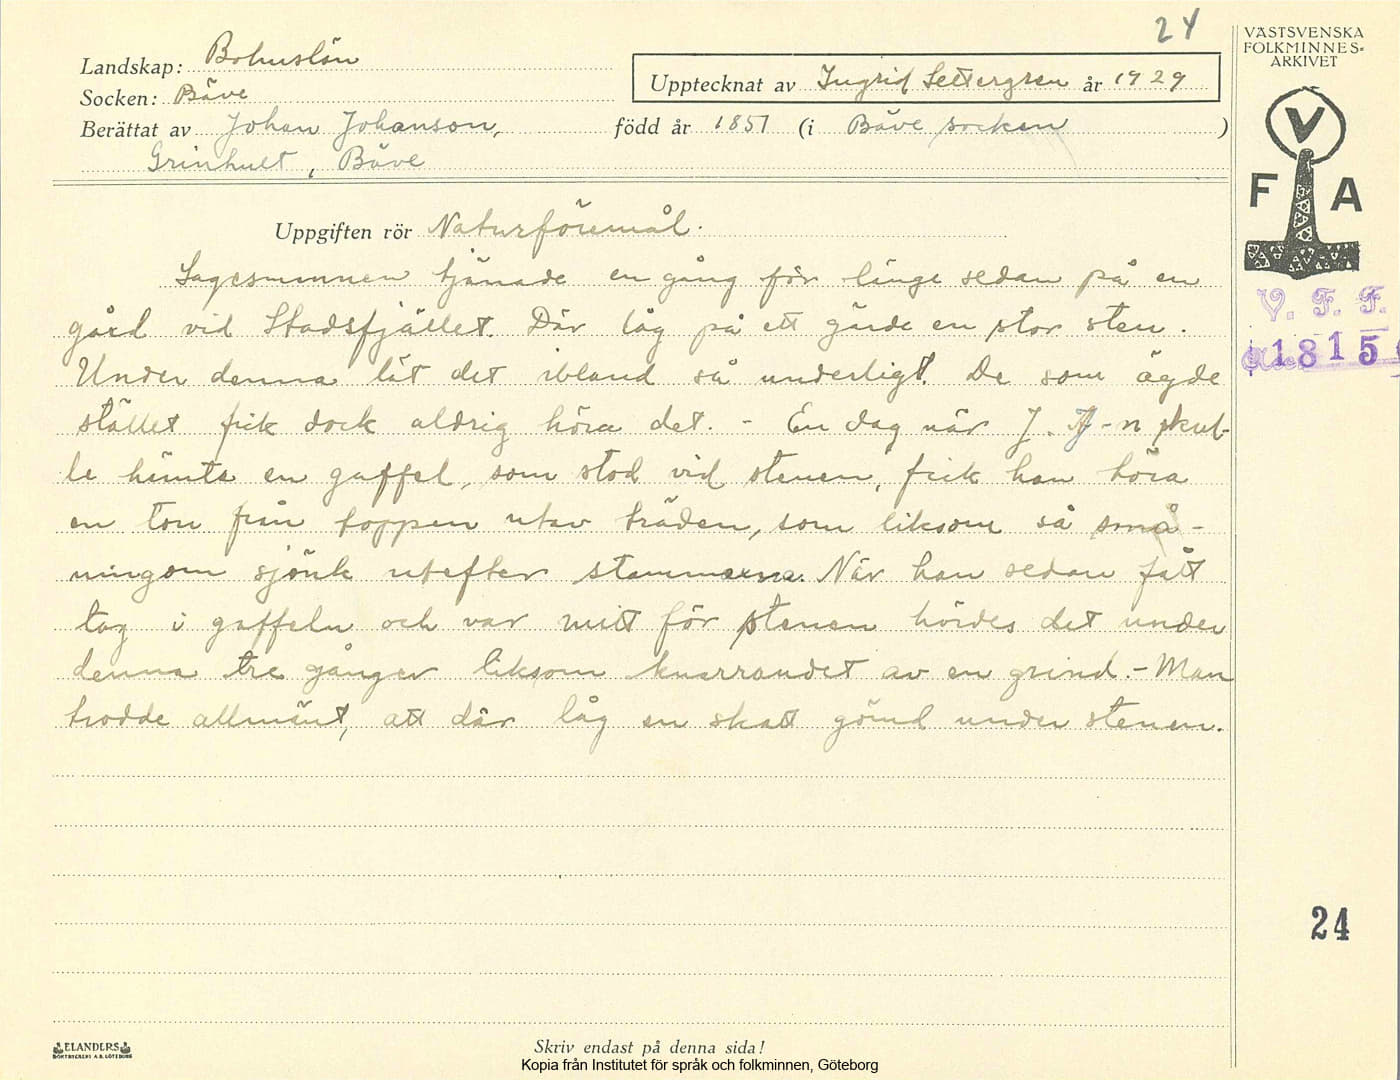 24
VÄSTSVENSKA
FOLKMINNES-
ARKIVET
Landskap: Bohuslän
Upptecknat av Ingrid Settergren år 1929
Socken: Bäve
Berättat av Johan Johanson, född år 1851 (i Bäve socken )
Grinhult, Bäve
V
F A
Uppgiften rör Naturföremål.
Sagesmannen tjänade en gång för länge sedan på en
gård vid Stadsfjället. Där låg på ett gärde en stor sten.
Under denna lät det ibland så underligt. De som ägde
stället fick dock aldrig höra det. - En dag när J. J-n skul-
le hämta en gaffel, som stod vid stenen, fick han höra
en ton från toppen utav träden, som liksom så små-
ningom sjönk utefter stammarna. När han sedan fått
tag i gaffeln och var mitt för stenen hördes det under
denna tre gånger liksom knarrandet av en grind. - Man
trodde allmänt, att där låg en skatt gömd under stenen.
V. F. F.
1815
24
ELANDERS
BOKTRYCKERI A.B. GÖTEBORG
Skriv endast på denna sida!
Kopia från Institutet för språk och folkminnen, Göteborg